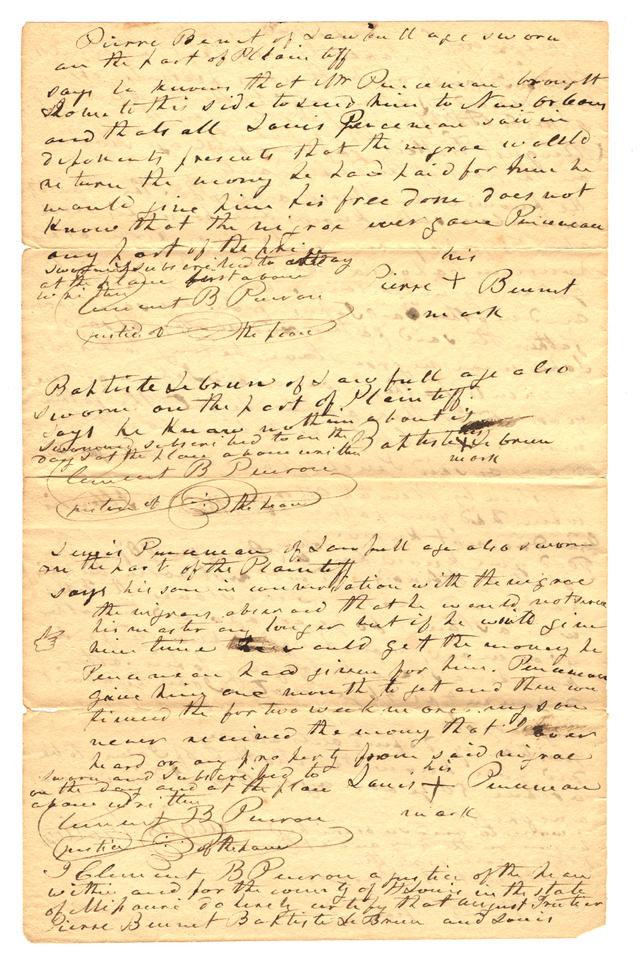 Pierre Benet of Lawfull age sworn
on the part of Plaintiff
says he knows that Mr Penceneau brought
home to this side to send him to New orleans
and thats all Louis Penceneau said in
deponents presents that the nigroe would
return the money he had paid for him he
would give him his free dom does not
know that the nigroe ever gave Penceneau
any part of the
sworn & subscribed to day
at the place first above
written
his
Pierre + Bennet
mark
Clement B Penrou
justice of the peace
Baptiste Lebrun of Lawfull age also
sworn on the part of Plaintiff
says he know nothin about it
sworn & subscribed to on the
day & at the place above written
his
Baptiste + Lebrun
mark
Clement B Penrou
justice of the peace
Lewis Penceneau of Lawfull age also sworn
on the part of the Plaintiff
says his son in conversation with the nigroe
the nigroes observed that he would not serve
his master any longer but if he would give
him time he would get the money he
Penceneau had given for him. Penceneau
give him one month to get and then con
tinued the for two week in one my son
never received the mony that I ever
heard or any property from said nigroe
sworn and subscribed to
on the day and at the place
above written
his
Louis + Penceneau
mark
Clement B Penrou
justice of the peace
I Clement B Penrou a justice of the peace
within and for the county of St Louis in the state
of Missouri do certify that august
Pierre Bennet Baptiste LeBrun and Louis